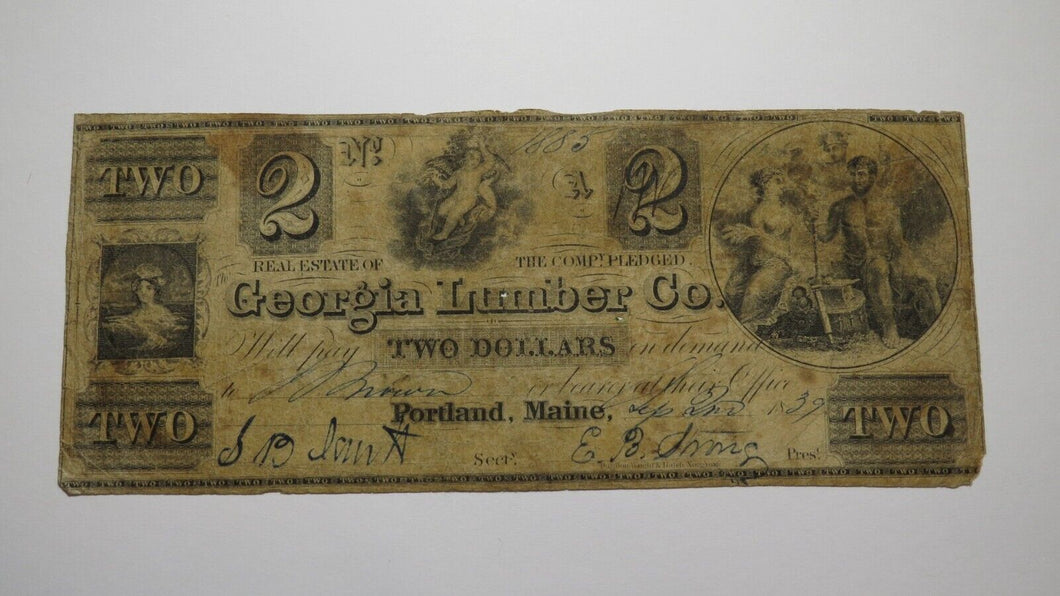 TWO
2 No. 1885 A 2
REAL ESTATE OF THE COMPY. PLEDGED.
The
Georgia Lumber Co.
Will pay TWO DOLLARS on demand
to J Brown or bearer at their Office
Portland, Maine, Sep 2nd 1839
Secry. E. B. Strong Prest.
TWO
TWO